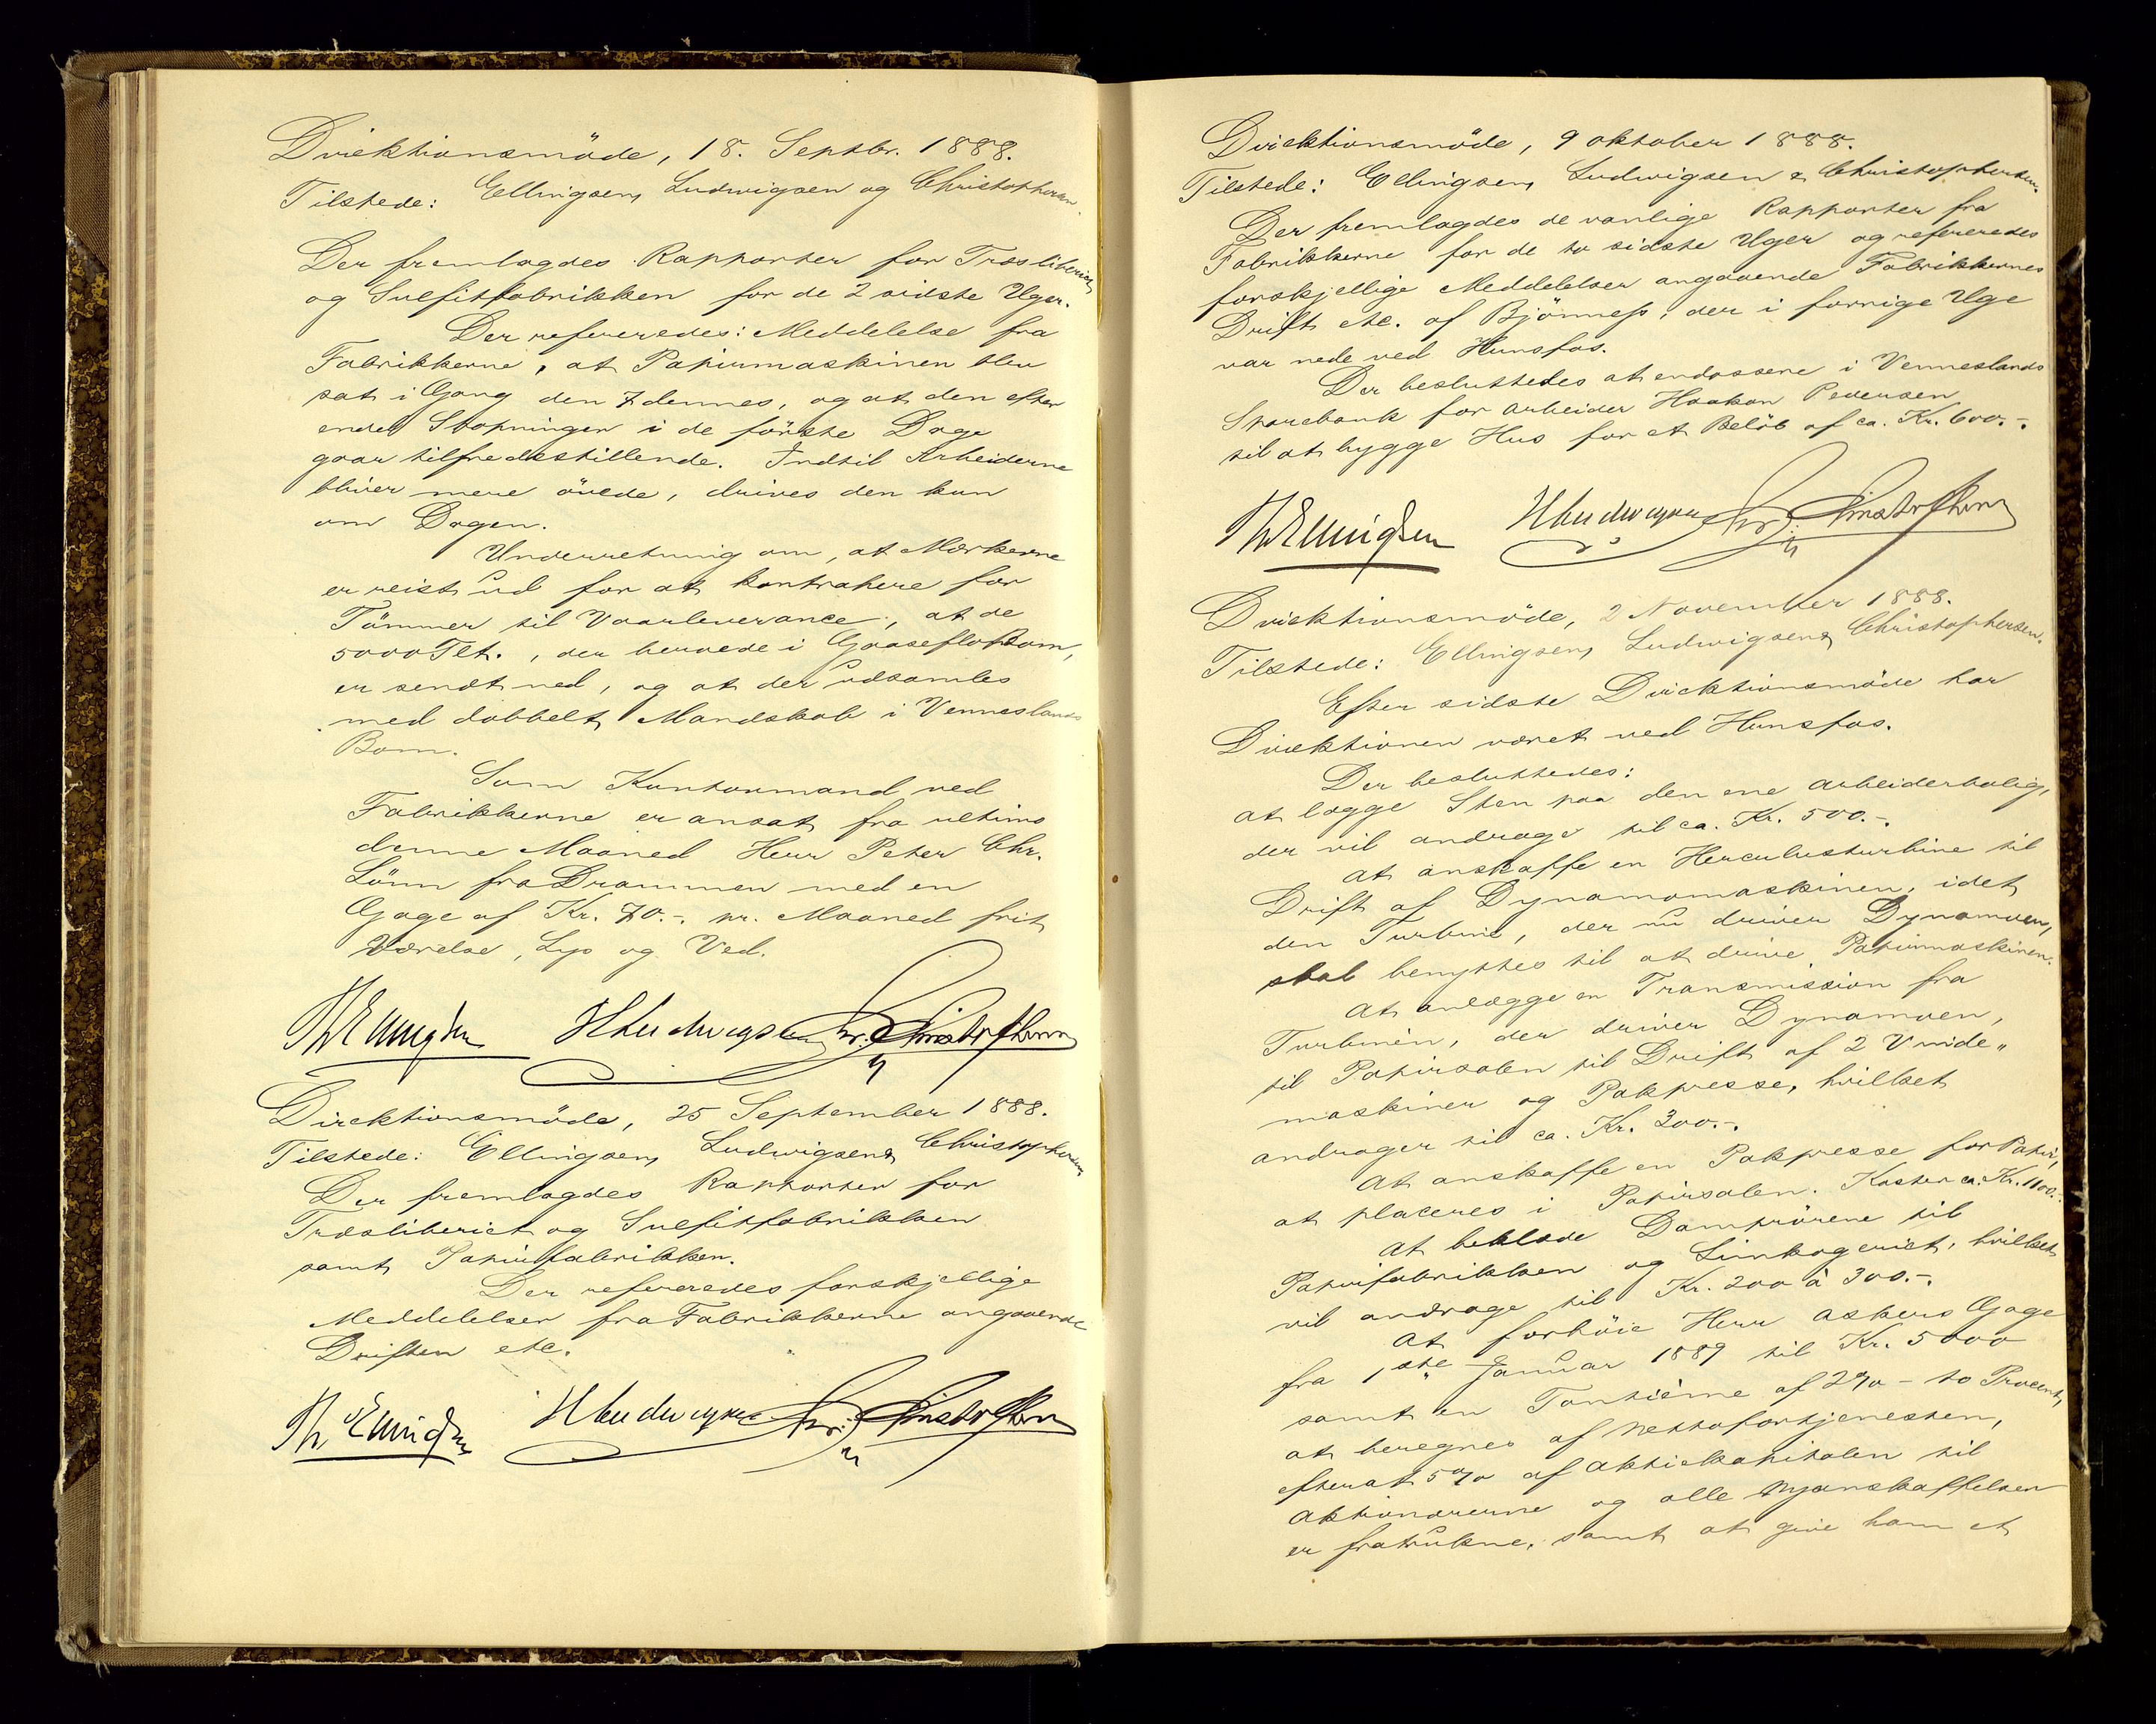 Direktionsmöde, 18. Septbr. 1888.
Tilstede: Ellingsen, Ludwigsen og Christophersen.
Der fremlagdes Rapporter for Træsliberiet
og Sulfitfabrikken for de 2 sidste Uger.
Der refereredes: Meddelelse fra
Fabrikkerne, at Papirmaskinen blev
sat i Gang den 7 dennes, og at den efter
endel Stopninger i de förste Dage
gaar tilfredsstillende. Indtil Arbeiderne
bliver mere övede, drives den kun
om Dagen.
Underretning om, at Mærkerne
er reist ud for at kontrahere for
Tömmer til Vaarleverance, at de
5000 Tlt., der beroede i Gaaseflaabom,
er sendt ned, og at der udsamles
med dobbelt Mandskab i Venneslands
Bom.
Som Kontormand ved
Fabrikkerne er ansat fra ultimo
denne Maaned Herr Peter Chr.
Lönn fra Drammen med en
Gage af Kr. 70.-. pr. Maaned frit
Værelse, Lys og Ved.
Th Ellingsen H Ludwigsen Chr. Christophersen
Direktionsmöde, 25 September 1888.
Tilstede: Ellingsen, Ludwigsen & Christophersen
Der fremlagdes Rapporter for
Træsliberiet og Sulfitfabrikken
samt Papirfabrikken.
Der refereredes forskjellige
Meddelelser fra Fabrikkerne angaaende
Driften etc.
Th. Ellingsen H Ludwigsen Chr. Christophersen
Direktionsmöde, 9 oktober 1888.
Tilstede: Ellingsen, Ludwigsen & Christophersen.
Der fremlagdes de vanlige Rapporter fra
Fabrikkerne for de to sidste Uger og refereredes
forskjellige Meddelelser angaaende Fabrikkernes
Drift etc. af Bjönness, der i forrige Uge
var nede ved Hunsfos.
Der besluttedes at endossere i Venneslands
Sparebank for arbeider Haakon Pedersen
til at bygge Hus for et Belöb af ca. Kr. 600.-.
Th Ellingsen H Ludwigsen Chr. Christophersen
Direktionsmöde, 2 November 1888.
Tilstede: Ellingsen, Ludwigsen & Christophersen.
Efter sidste Direktionsmöde har
Direktionen været ved Hunsfos.
Der besluttedes:
at lægge Sten paa den ene arbeiderbolig,
der vil andrage til ca. Kr. 500.-.
at anskaffe en Herculusturbine til
Drift af Dynamomaskinen, idet
den Turbine, der nu driver Dynamoen,
skal benyttes til at drive Papirmaskinen.
At anlægge en Transmission fra
Turbinen, der driver Dynamoen,
til Papirsalen til Drift af 2 Vinde„
maskiner og Pakpresse, hvilket
andrager til ca. Kr. 300.-.
At anskaffe en Pakpresse for Papir,
at placeres i Papirsalen. Koster ca. Kr. 1100.-.
at beklæde Damprörene til
Papirfabrikken og Limkogeriet, hvilket
vil andrage til Kr. 200 à 300.-.
at forhöie Herr Askers Gage
fra 1ste Januar 1889 til Kr. 5000
samt en Tantième af 2% - to Procent,
at beregnes af Nettofortjenesten,
efterat 5% af Aktiekapitalen til
Aktionærerne og alle Nyanskaffelser
er fratrukne, samt at give ham et